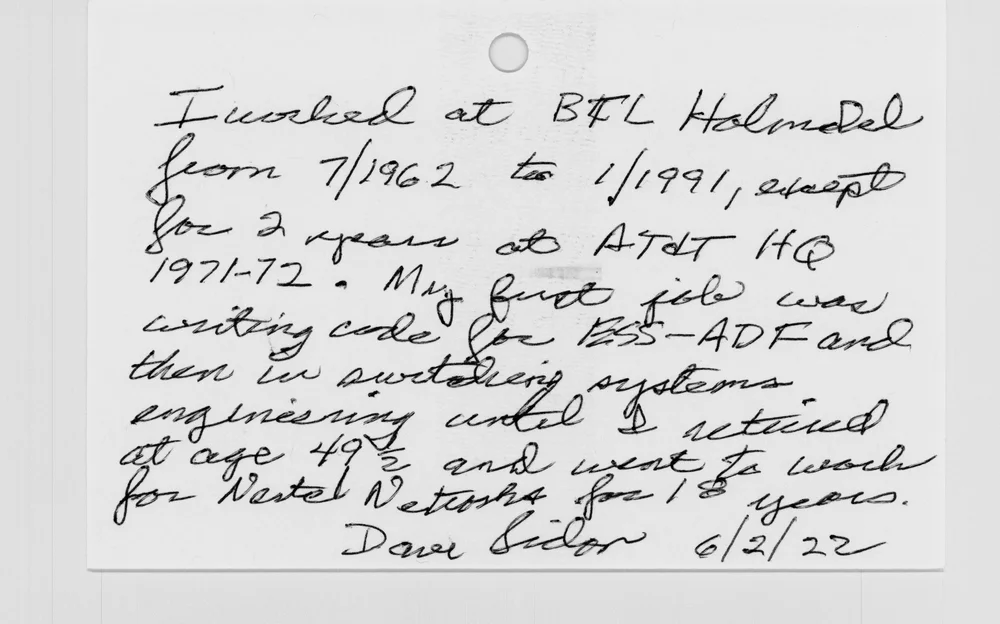 I worked at BTL HolmDel
from 7/1962 to 1/1991, except
for 2 years at AT&T HQ
1971-72. My first job was
writing code for ESS-ADF and
then in switching systems
engineering until I retired
at age 49 1/2 and went to work
for Nortel Networks for 18 years.
Dave Sidor 6/2/22